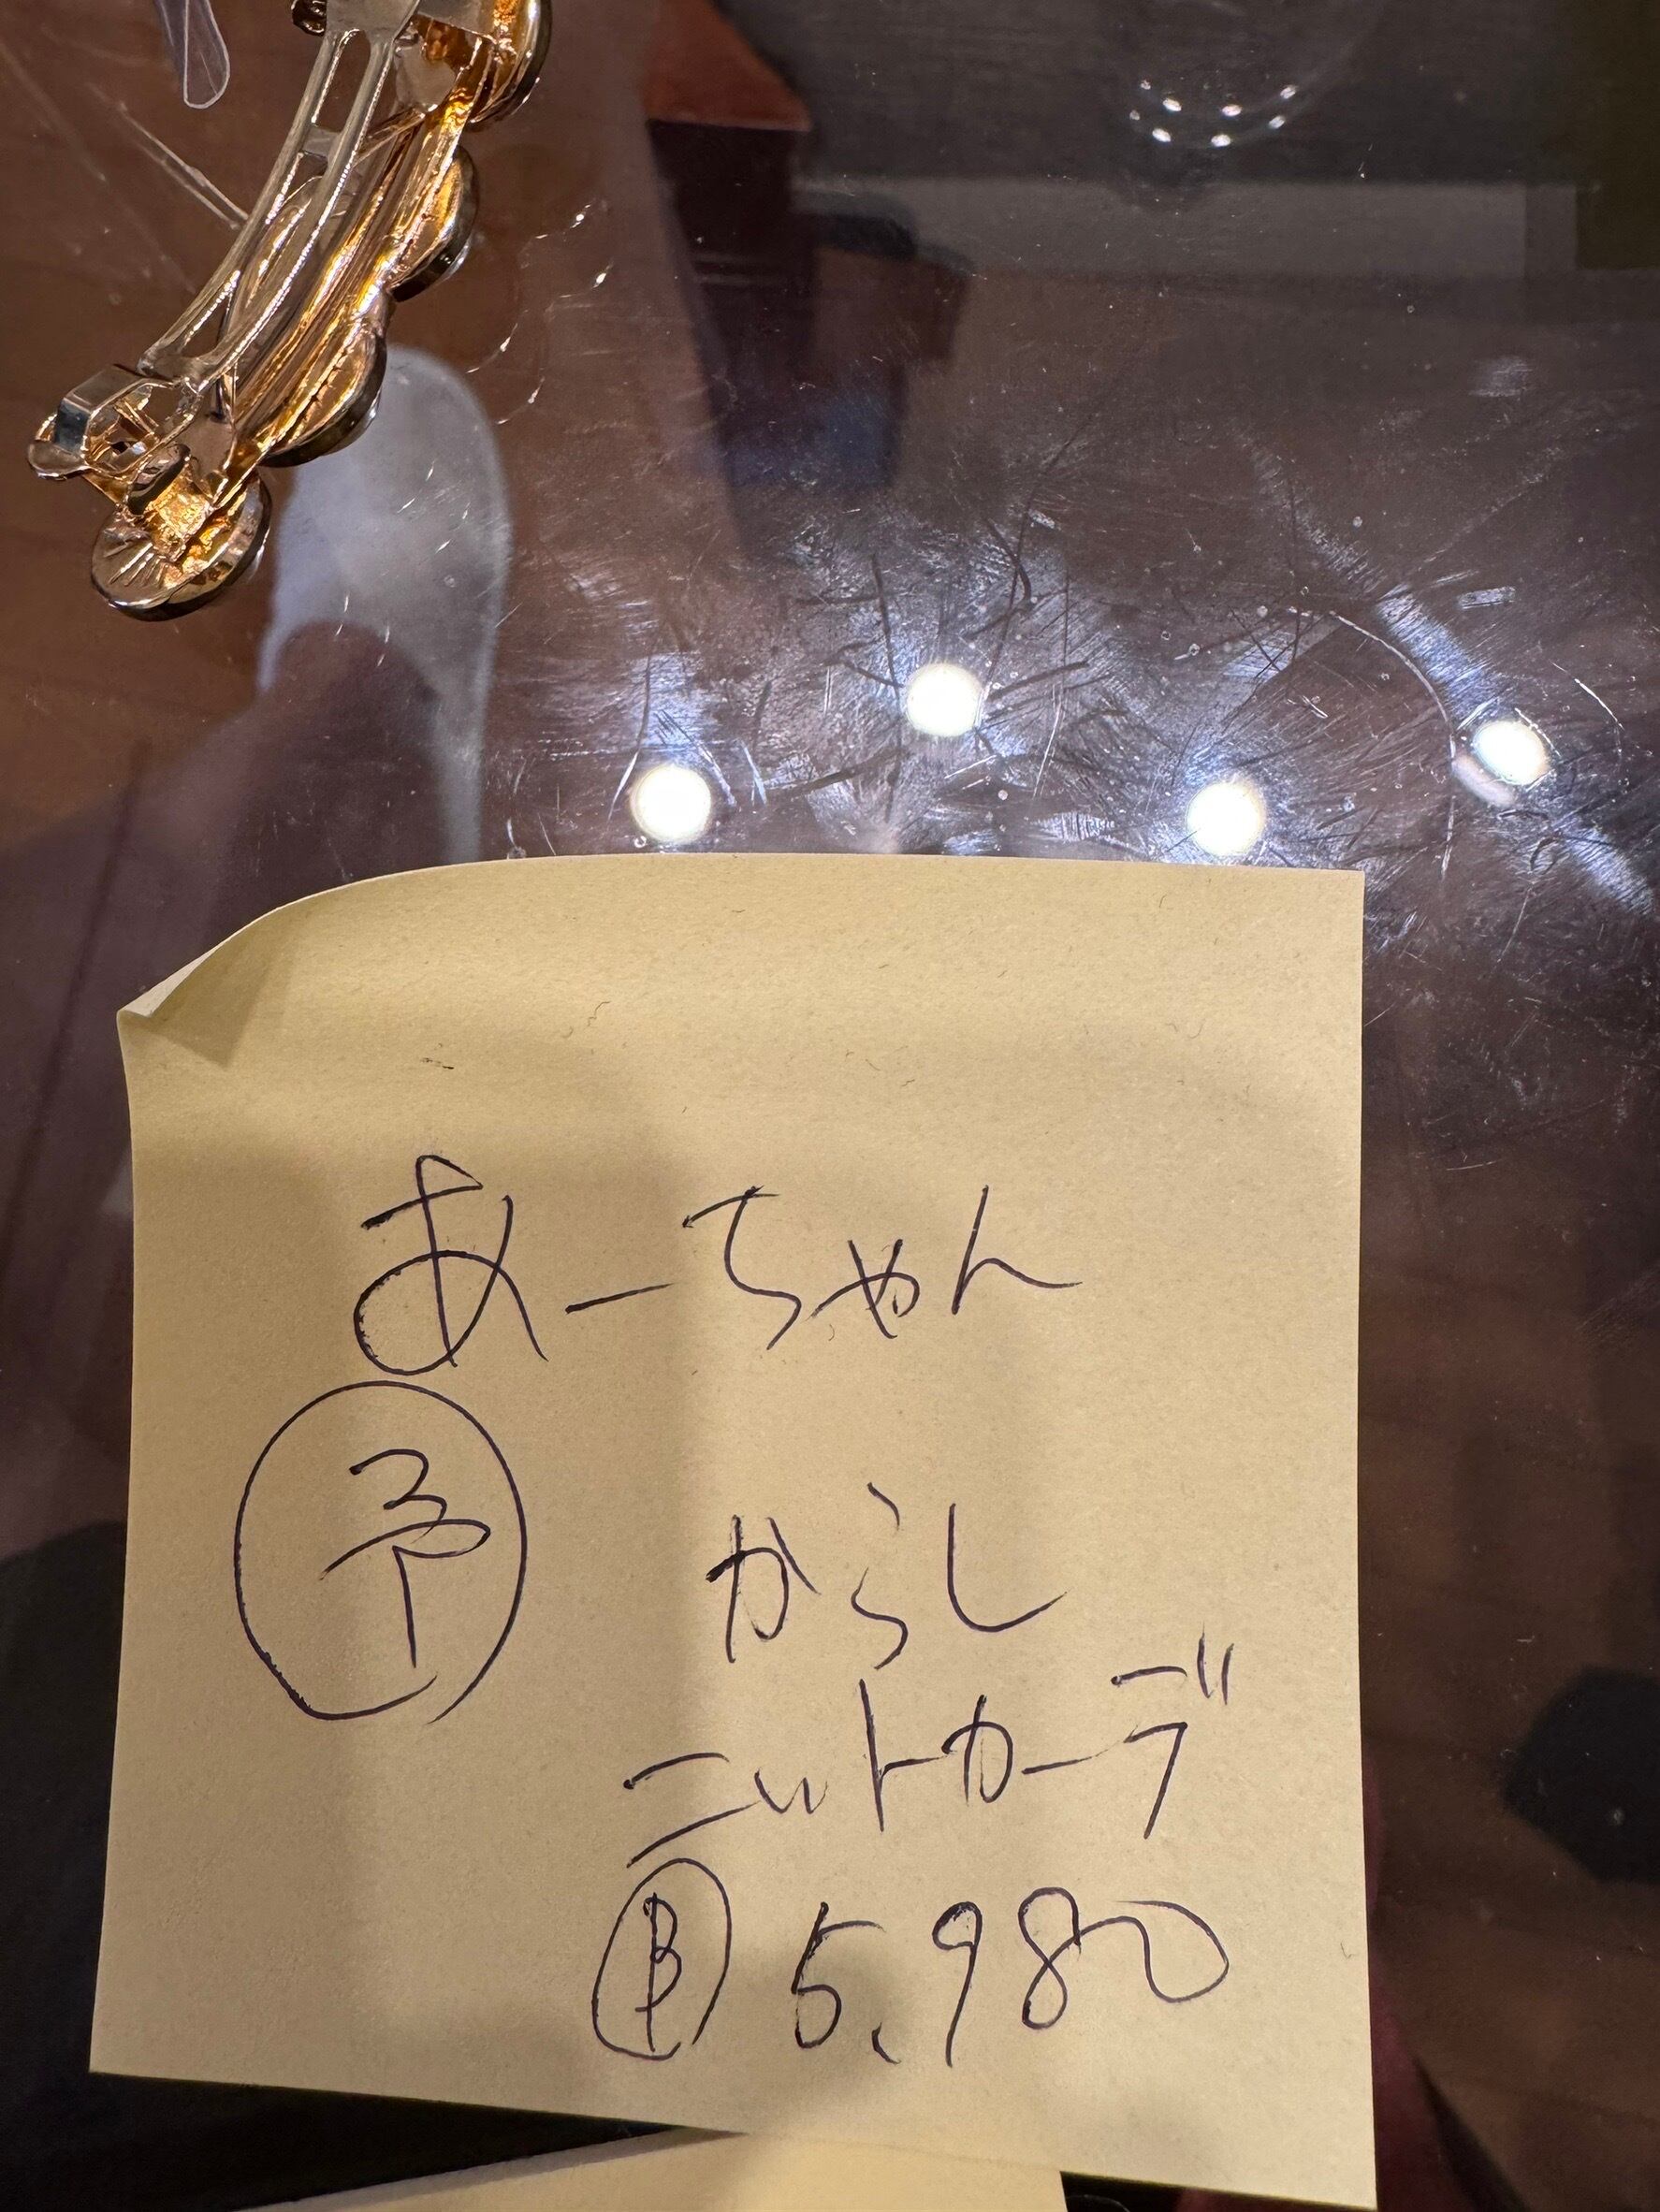 あーちゃん
予 からし
ニットカーデ
5,980